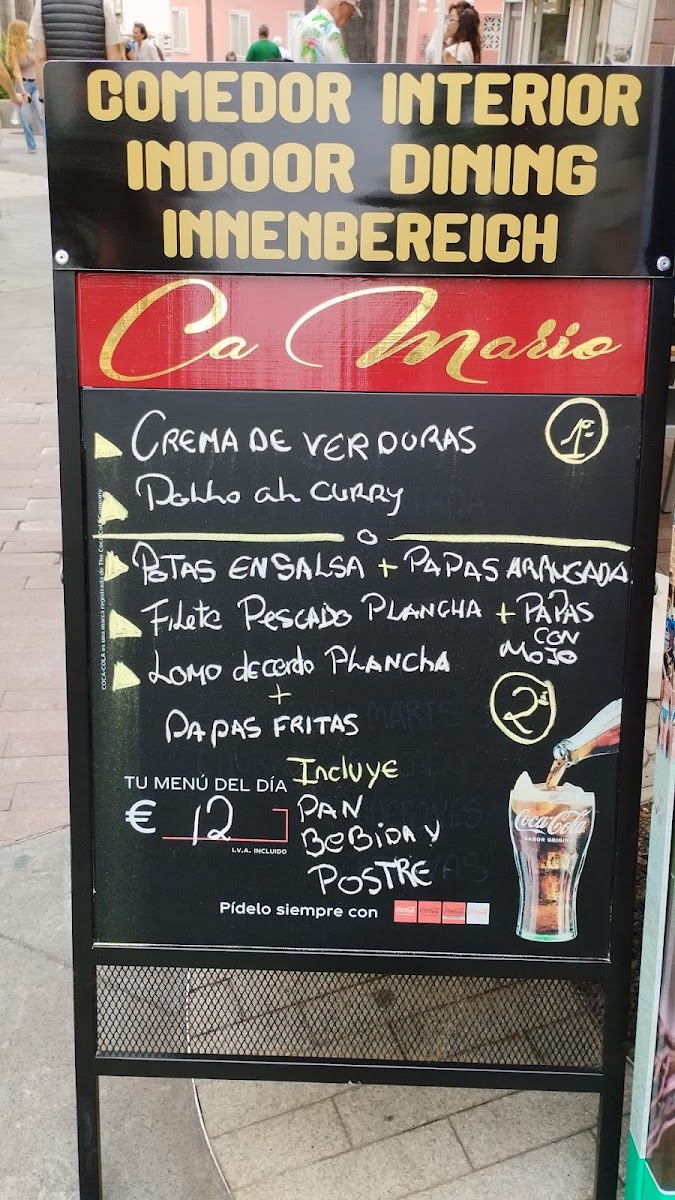 COMEDOR INTERIOR
INDOOR DINING
INNENBEREICH
Ca Mario
CREMA DE VERDURAS 1º
POLLO AL CURRY
O
POTAS EN SALSA + PAPAS ARRUGADA
Filete PESCADO PLANCHA + PAPAS
CON
MOJO
LOMO de cerdo PLANCHA
+
PAPAS FRITAS
2º
TU MENÚ DEL DÍA
€ 12
I.V.A. INCLUIDO
Incluye
PAN
BEBIDA Y
POSTRE
Pídelo siempre con
Coca-Cola
SABOR ORIGINAL
COCA-COLA es una marca registrada de The Coca-Cola Company.